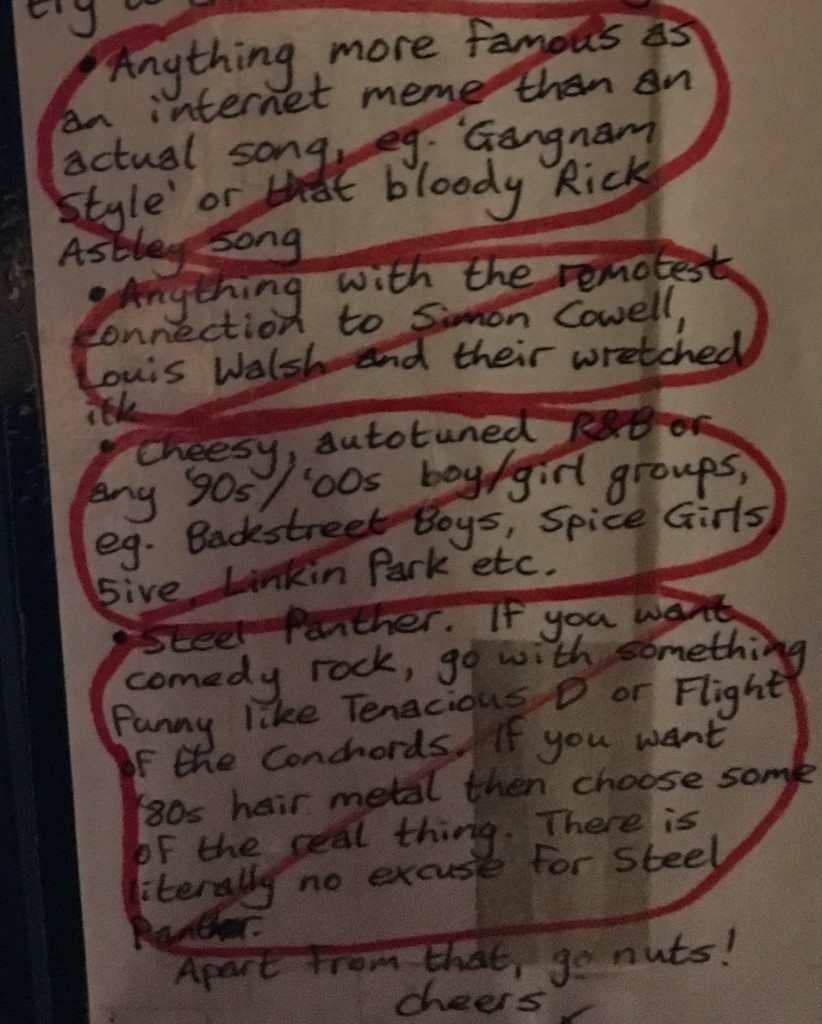 try to
• Anything more famous as
an internet meme than an
actual song, eg. 'Gangnam
Style' or that bloody Rick
Astley song
• Anything with the remotest
connection to Simon Cowell,
Louis Walsh and their wretched
ilk
• Cheesy, autotuned R&B or
any '90s/'00s boy/girl groups,
eg. Backstreet Boys, Spice Girls,
5ive, Linkin Park etc.
• Steel Panther. If you want
comedy rock, go with something
funny like Tenacious D or Flight
of the Conchords. If you want
'80s hair metal then choose some
of the real thing. There is
literally no excuse for Steel
Panther.
Apart from that, go nuts!
cheers